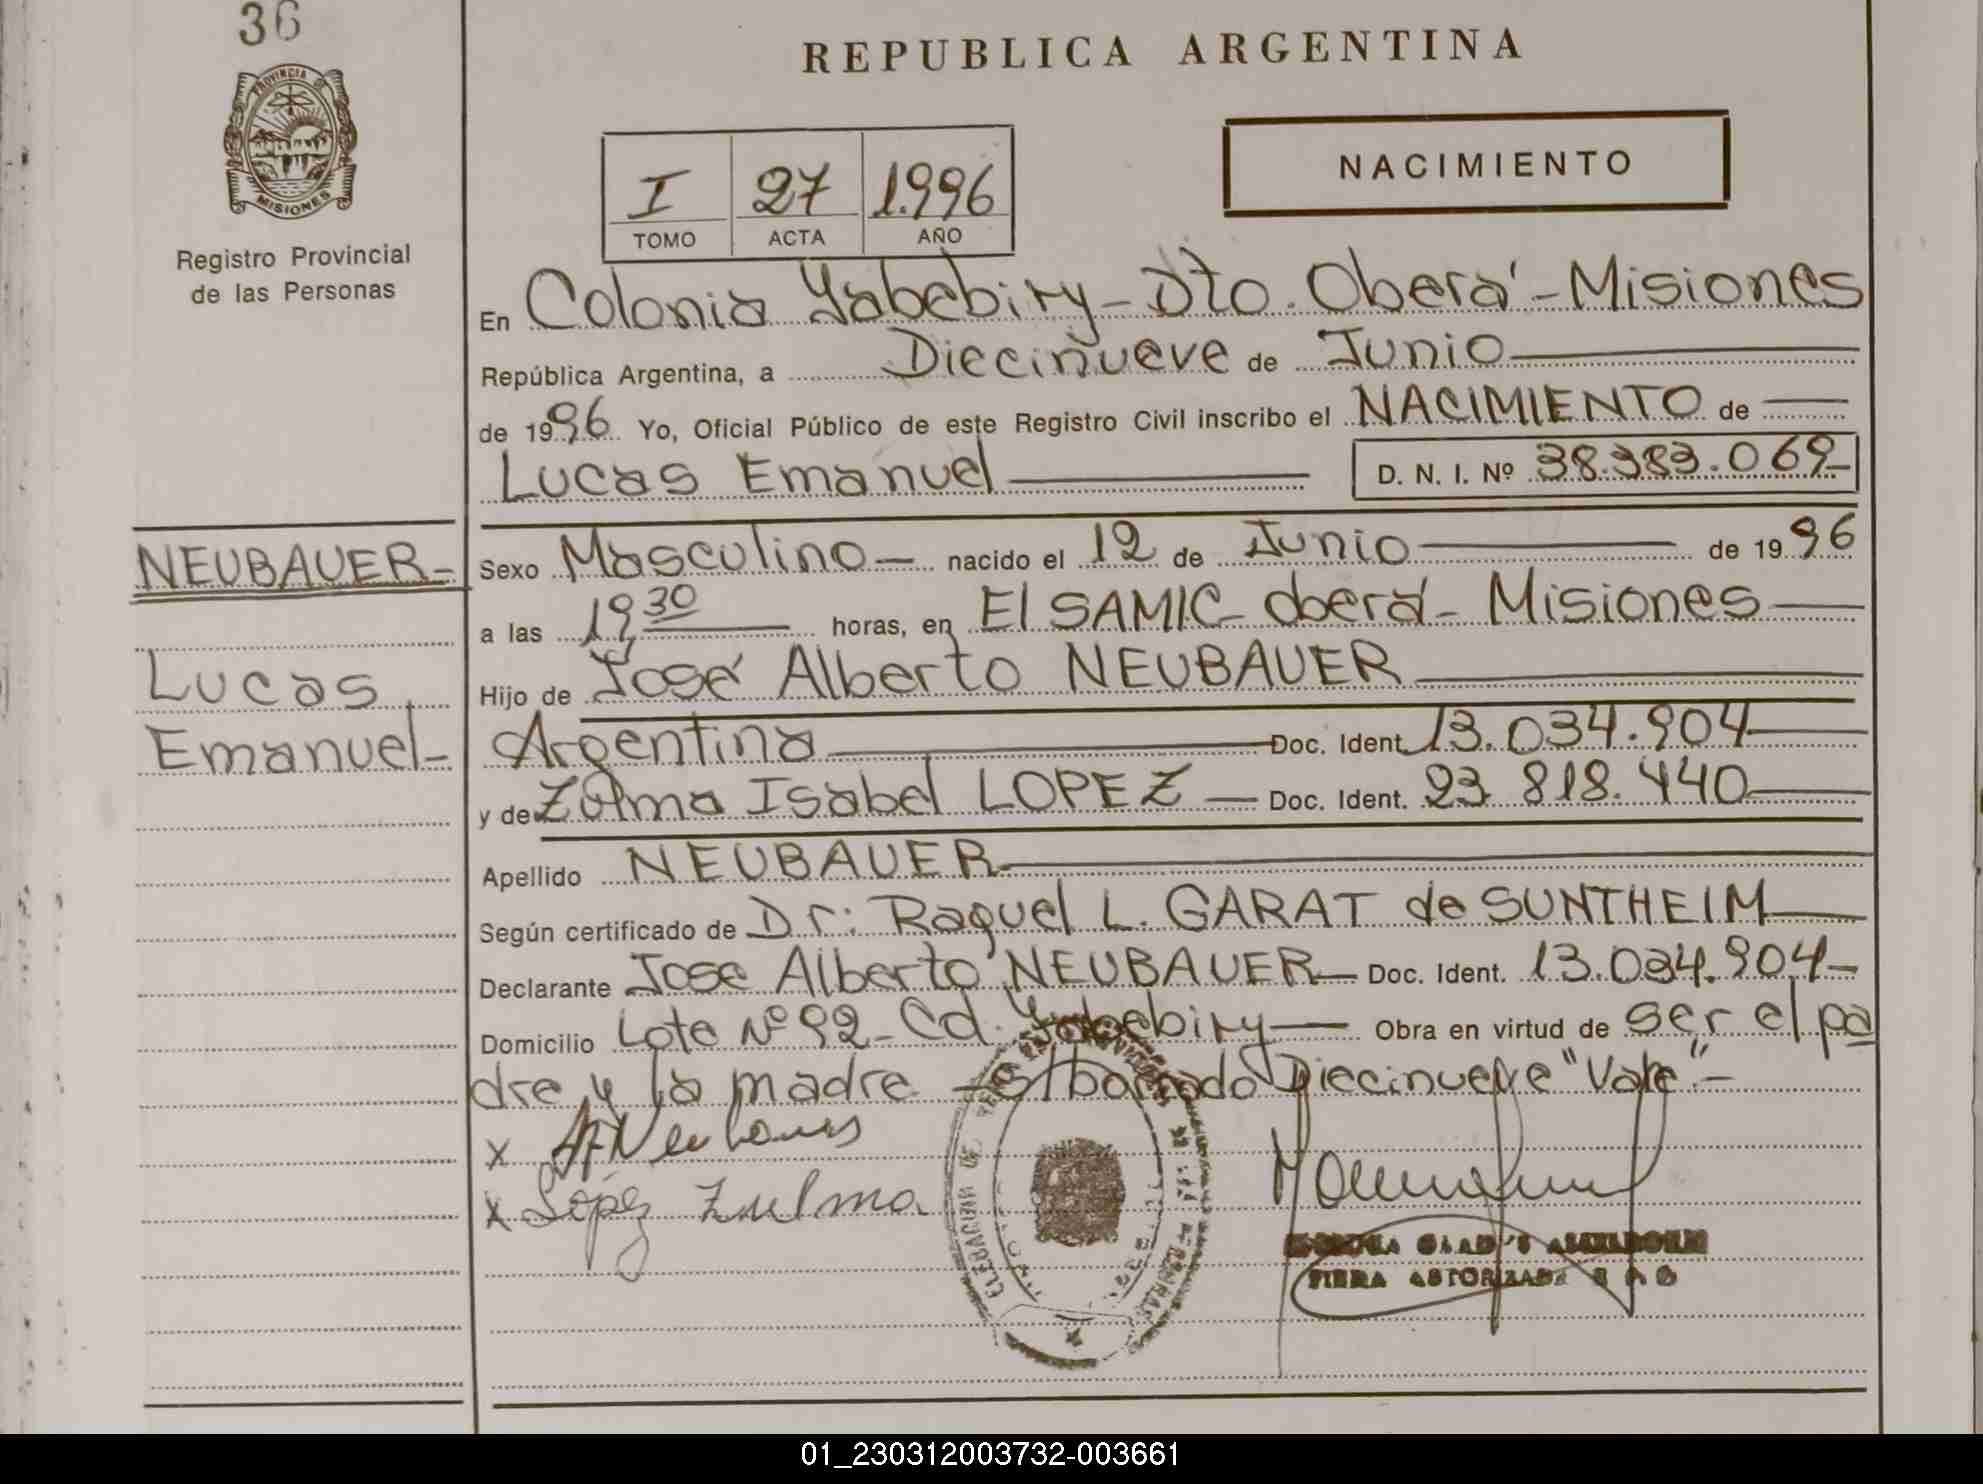 36
REPUBLICA ARGENTINA
PROVINCIA DE MISIONES
Registro Provincial
de las Personas
I 27 1.996
TOMO ACTA AÑO
NACIMIENTO
En Colonia Yabebiry - Dto. Oberá - Misiones
República Argentina, a Diecinueve de Junio
de 1996 Yo, Oficial Público de este Registro Civil inscribo el NACIMIENTO de
Lucas Emanuel D. N. I. Nº 38.383.069
NEUBAUER-
Lucas
Emanuel-
Sexo Masculino - nacido el 12 de Junio de 1996
a las 19,30 horas, en El SAMIC - Oberá - Misiones
Hijo de José Alberto NEUBAUER
Argentina Doc. Ident. 13.034.904
y de Zulma Isabel LOPEZ - Doc. Ident. 23 818.440
Apellido NEUBAUER
Según certificado de Dr: Raquel L. GARAT de SUNTHEIM
Declarante Jose Alberto NEUBAUER - Doc. Ident. 13.034.904-
Domicilio Lote Nº 92 - Cd. Yabebiry - Obra en virtud de ser el pa
dre y la madre - s/borrado Diecinueve "Vale" -
x Neubauer
x López Zulma.
01_230312003732-003661